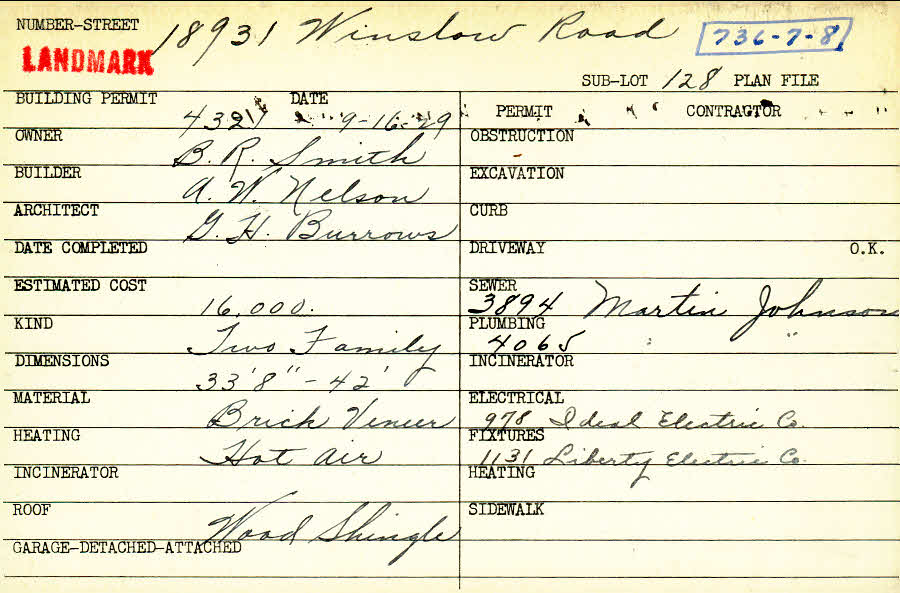 NUMBER-STREET 18931 Winslow Road 736-7-8
LANDMARK
SUB-LOT 128 PLAN FILE
BUILDING PERMIT 4321 DATE 9-16-29
PERMIT CONTRACTOR
OWNER B. R. Smith
OBSTRUCTION
BUILDER A. W. Nelson
EXCAVATION
ARCHITECT G. H. Burrows
CURB
DATE COMPLETED
DRIVEWAY O.K.
ESTIMATED COST 16,000.
SEWER 3894 Martin Johnson
KIND Two Family
PLUMBING 4065 " "
DIMENSIONS 33'8" - 42'
INCINERATOR
MATERIAL Brick Veneer
ELECTRICAL 978 Ideal Electric Co.
HEATING Hot Air
FIXTURES 1131 Liberty Electric Co.
INCINERATOR
HEATING
ROOF Wood Shingle
SIDEWALK
GARAGE-DETACHED-ATTACHED